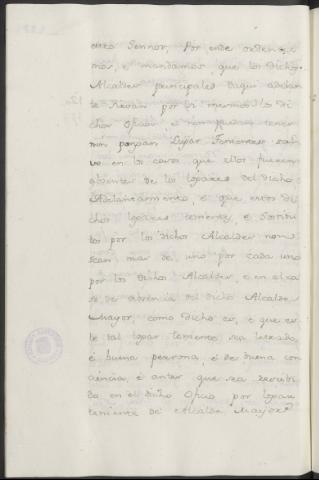 otro Sennor, Por ende ordena=
mos, e mandamos que los dichos
Alcaldes principales daqui adelan
te sirvan por si mesmos los di
chos Oficios, e non puedan tener
nin pongan Lugar Tenientes sal
vo en los casos que ellos fueren
absentes de los logares del dicho
Adelantamiento, e que estos di
chos logares tenientes, e Sostitu
tos por los dichos Alcaldes non
sean mas de uno por cada uno
por los dichos Alcaldes, e en el ca
so de absencia del dicho Alcalde
Mayor, como dicho es, e que es
te tal logar teniente sea letrado,
é buena persona, é de buena con
ciencia, é antes que sea recevi
do en el dicho Oficio por logar
teniente de Alcalde Mayor